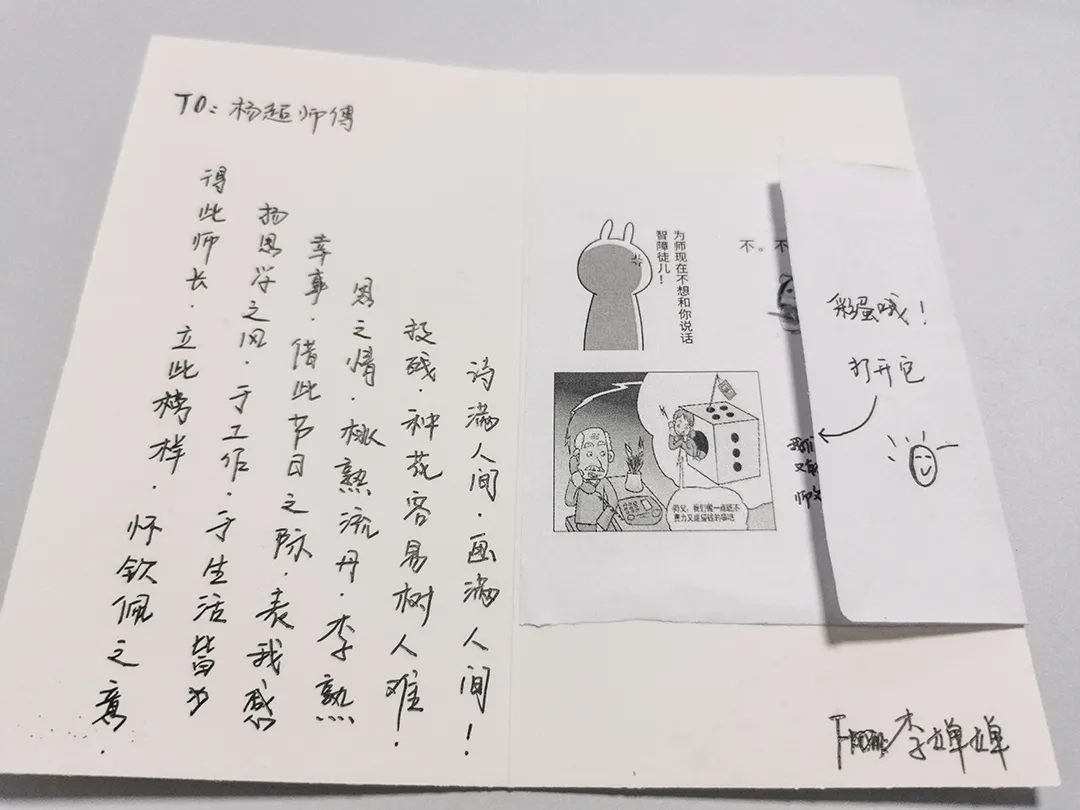 TO: 杨超师傅
得此师长.立此榜样.怀钦佩之意.
扬思学之风.于工作.于生活皆为
幸事.借此节日之际.表我感
恩之情.桃熟流丹.李熟
枝残.种花容易树人难.
诗满人间.画满人间!
为师现在不想和你说话
智障徒儿!
不。不
师父,我们做一点既不
费力又能赚钱的事吧
彩蛋哦!
打开它
From: 李婵婵